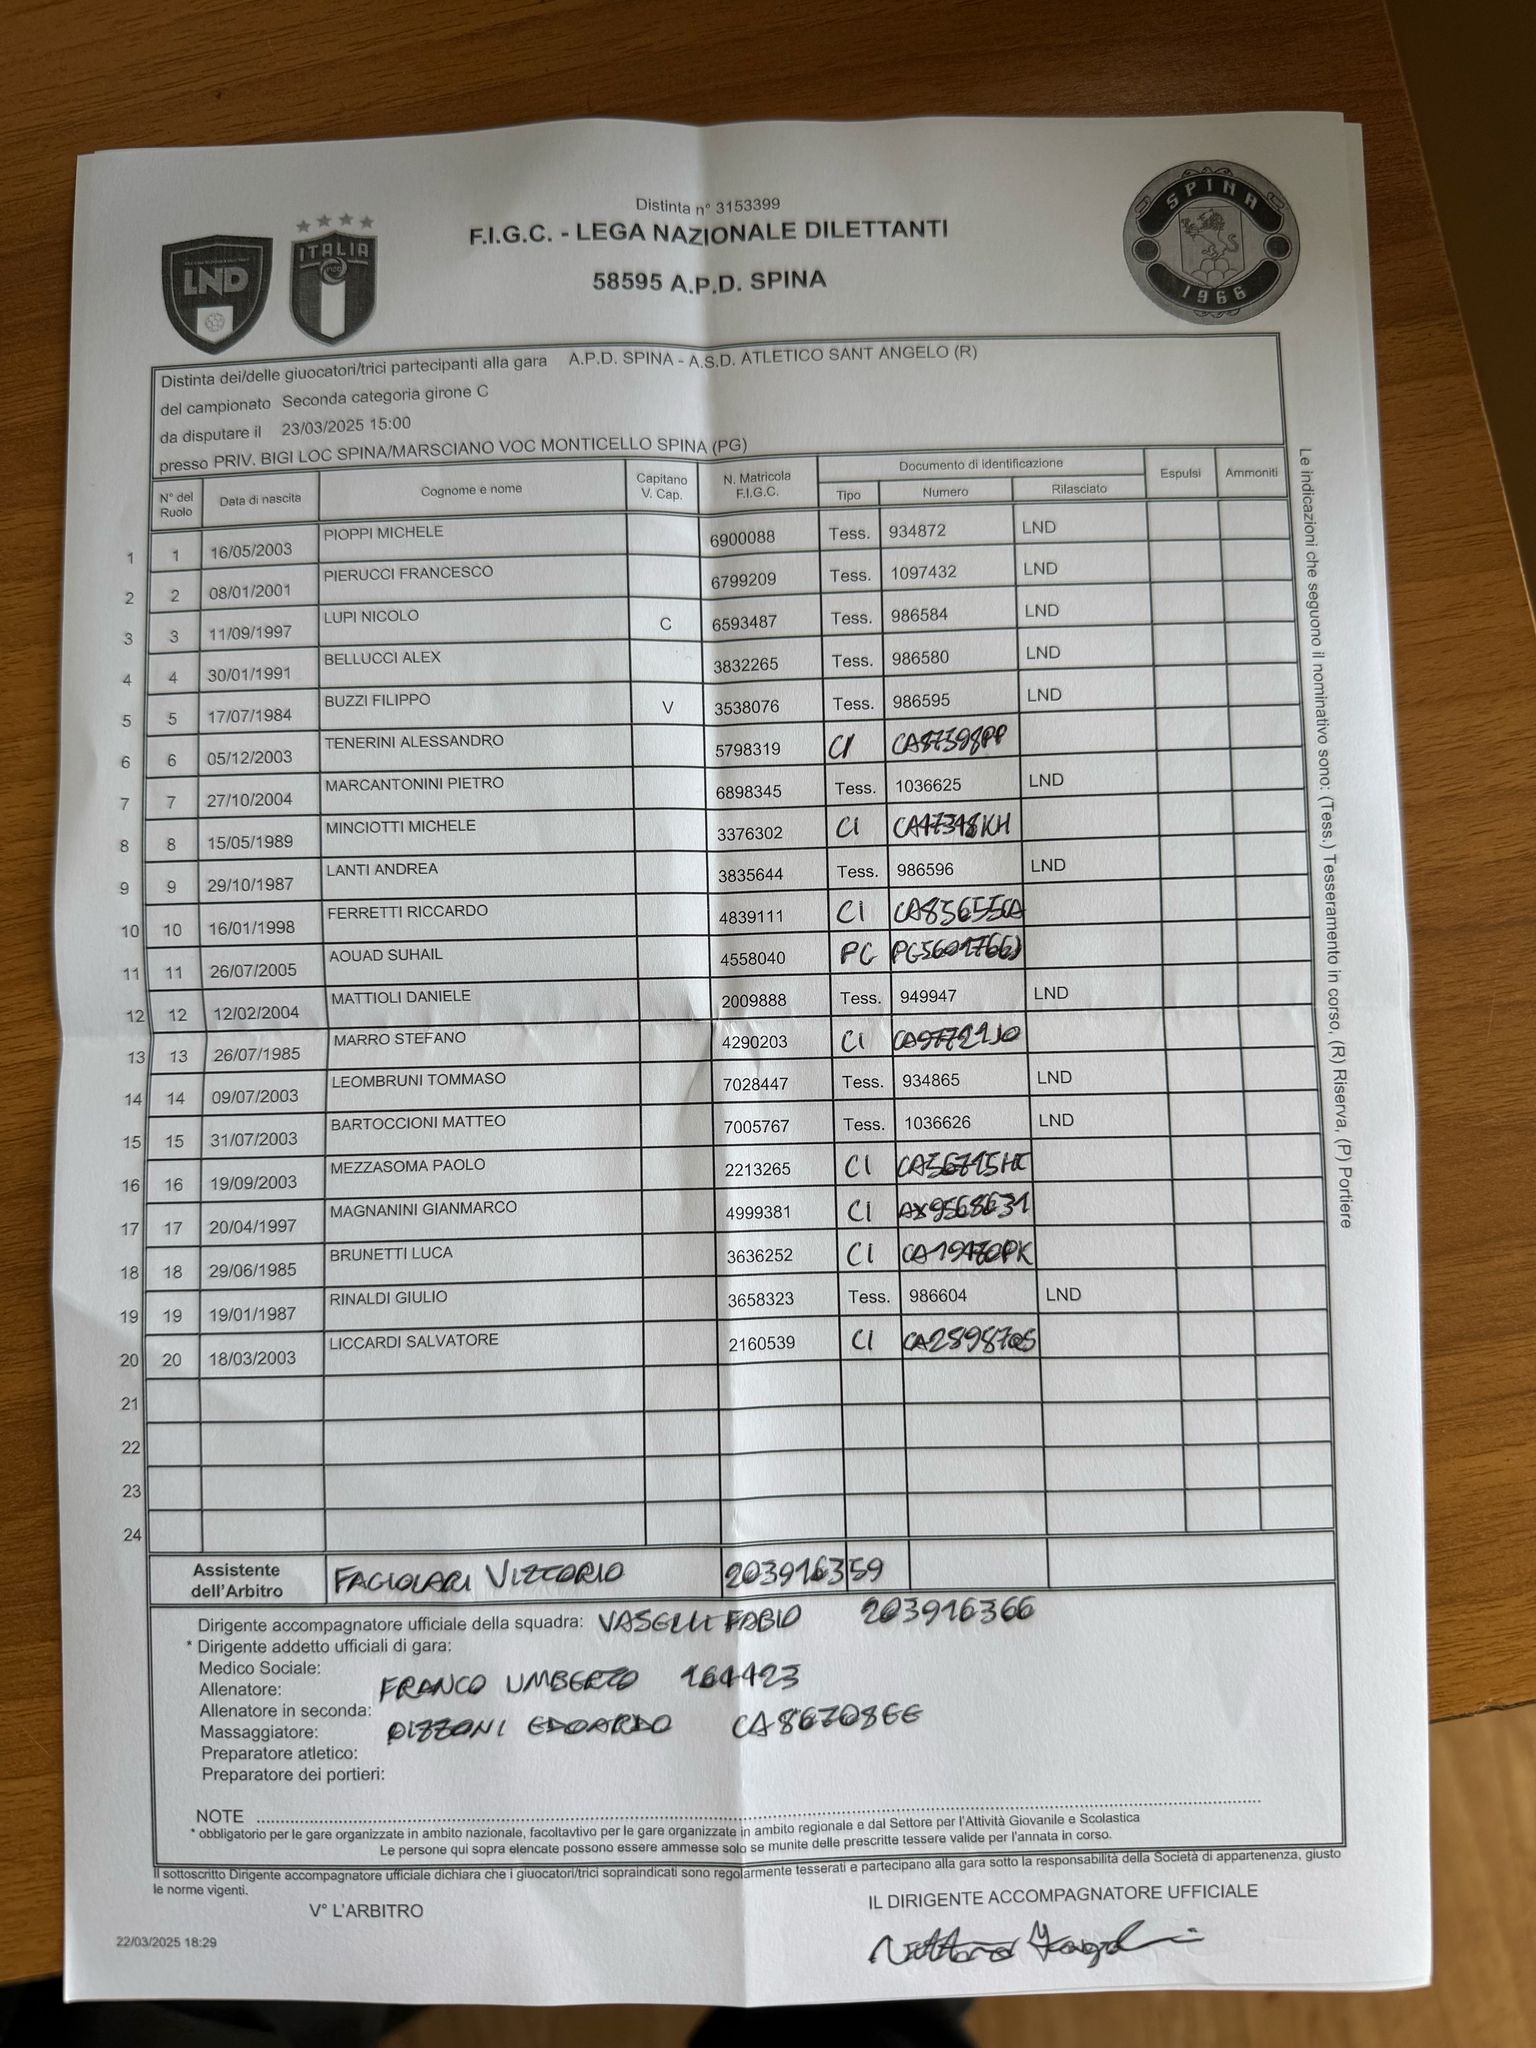 Distinta n° 3153399
F.I.G.C. - LEGA NAZIONALE DILETTANTI
58595 A.P.D. SPINA
LND
ITALIA
SPINA
1966
Distinta dei/delle giuocatori/trici partecipanti alla gara A.P.D. SPINA - A.S.D. ATLETICO SANT ANGELO (R)
del campionato Seconda categoria girone C
da disputare il 23/03/2025 15:00
presso PRIV. BIGI LOC SPINA/MARSCIANO VOC MONTICELLO SPINA (PG)
N° del Ruolo Data di nascita Cognome e nome Capitano V. Cap. N. Matricola F.I.G.C. Documento di identificazione Espulsi Ammoniti
Tipo Numero Rilasciato
1 1 16/05/2003 PIOPPI MICHELE 6900088 Tess. 934872 LND
2 2 08/01/2001 PIERUCCI FRANCESCO 6799209 Tess. 1097432 LND
3 3 11/09/1997 LUPI NICOLO C 6593487 Tess. 986584 LND
4 4 30/01/1991 BELLUCCI ALEX 3832265 Tess. 986580 LND
5 5 17/07/1984 BUZZI FILIPPO V 3538076 Tess. 986595 LND
6 6 05/12/2003 TENERINI ALESSANDRO 5798319 CI CA87398PP
7 7 27/10/2004 MARCANTONINI PIETRO 6898345 Tess. 1036625 LND
8 8 15/05/1989 MINCIOTTI MICHELE 3376302 CI CA47348KH
9 9 29/10/1987 LANTI ANDREA 3835644 Tess. 986596 LND
10 10 16/01/1998 FERRETTI RICCARDO 4839111 CI
11 11 26/07/2005 AOUAD SUHAIL 4558040 PG
12 12 12/02/2004 MATTIOLI DANIELE 2009888 Tess. 949947 LND
13 13 26/07/1985 MARRO STEFANO 4290203 CI CA97721JO
14 14 09/07/2003 LEOMBRUNI TOMMASO 7028447 Tess. 934865 LND
15 15 31/07/2003 BARTOCCIONI MATTEO 7005767 Tess. 1036626 LND
16 16 19/09/2003 MEZZASOMA PAOLO 2213265 CI
17 17 20/04/1997 MAGNANINI GIANMARCO 4999381 CI AX9568631
18 18 29/06/1985 BRUNETTI LUCA 3636252 CI CA19470PK
19 19 19/01/1987 RINALDI GIULIO 3658323 Tess. 986604 LND
20 20 18/03/2003 LICCARDI SALVATORE 2160539 CI CA28987QS
21
22
23
24
Assistente dell'Arbitro FAGIOLARI VITTORIO 203916359
Dirigente accompagnatore ufficiale della squadra: VASELLI FABIO 203916366
* Dirigente addetto ufficiali di gara:
Medico Sociale:
Allenatore: FRANCO UMBERTO 164423
Allenatore in seconda:
Massaggiatore: PIZZONI EDOARDO CA86708EE
Preparatore atletico:
Preparatore dei portieri:
NOTE
* obbligatorio per le gare organizzate in ambito nazionale, facoltavtivo per le gare organizzate in ambito regionale e dal Settore per l'Attività Giovanile e Scolastica
Le persone qui sopra elencate possono essere ammesse solo se munite delle prescritte tessere valide per l'annata in corso.
Il sottoscritto Dirigente accompagnatore ufficiale dichiara che i giuocatori/trici sopraindicati sono regolarmente tesserati e partecipano alla gara sotto la responsabilità della Società di appartenenza, giusto
le norme vigenti.
V° L'ARBITRO
IL DIRIGENTE ACCOMPAGNATORE UFFICIALE
22/03/2025 18:29
Le indicazioni che seguono il nominativo sono: (Tess.) Tesseramento in corso, (R) Riserva, (P) Portiere